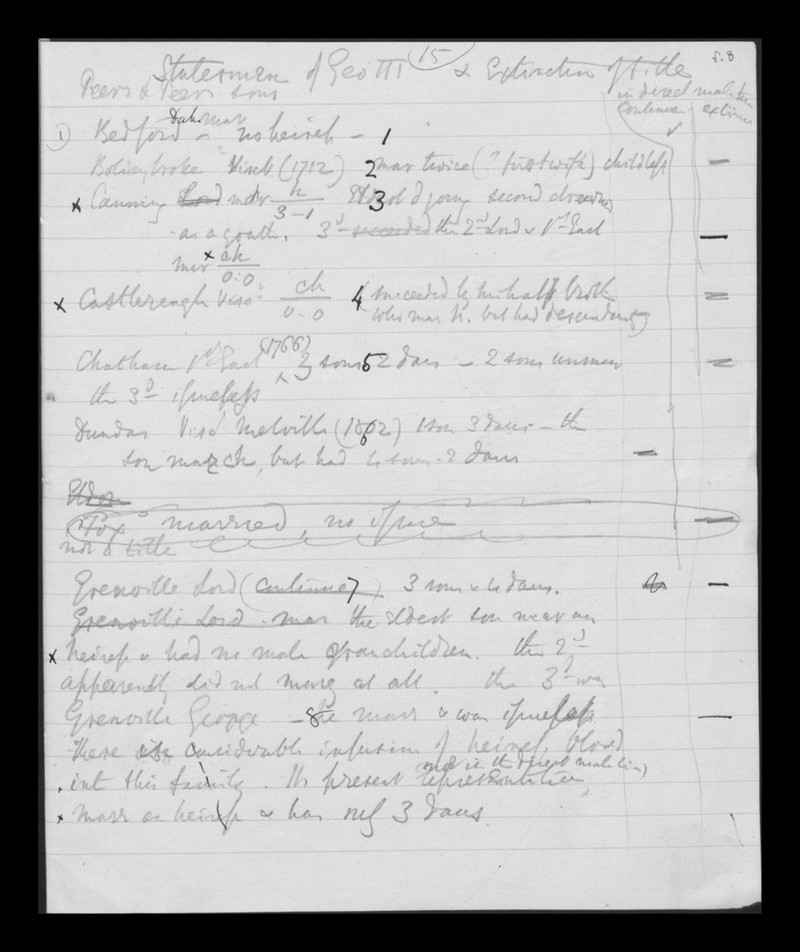 15
f.8
Statesmen of Geo III & Extinction of title
Peers & Peers sons
in direct male line
continue - extinct
1) Bedford - no heiress - 1
Bolingbroke Visct (1712) 2 mar twice (? first wife) childless
x Canning Lord mar h 3-1 3 old d young second drowned
as a youth. 3d succeeded the 2nd Lord & 1st Earl
mar x ch 0.0
x Castlereagh Visc ch 0-0 4 succeeded by his half broth
who mar h. but had descendants)
Chatham 1st Earl (1766) 3 sons 5 2 daus - 2 sons unmar
the 3d issueless
Dundas Visc Melville (1802) 6 1 son 3 daus - the
son mar ch, but had 4 sons. 2 daus
Eldon
Fox married, no issue
not a title
Grenville Lord (continue) 7 3 sons & 4 daus.
Grenville Lord mar the Eldest son mar an
x heiress & had no male grandchildren. the 2d
apparently did not marry at all. the 3d was
Grenville George - 8 he marr & was issueless
There is considerable infusion of heiress blood
not in the direct male line)
into this family. Its present representative,
x marr an heiress & has only 3 daus.